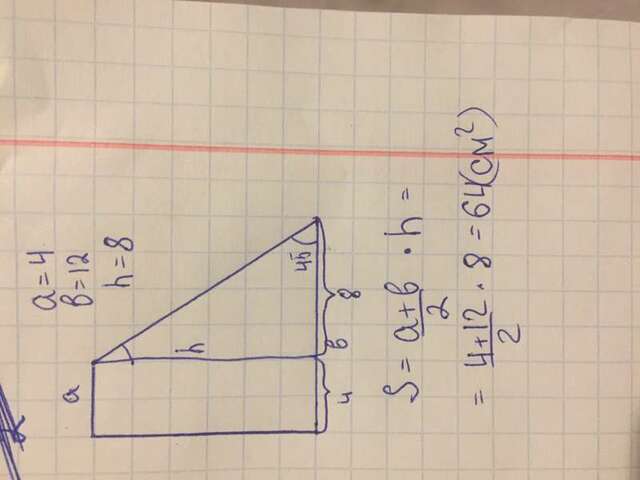 a=4
в=12
h=8
a
h
45
в
4 8
S = a+в/2 · h =
= 4+12/2 · 8 = 64(см²)